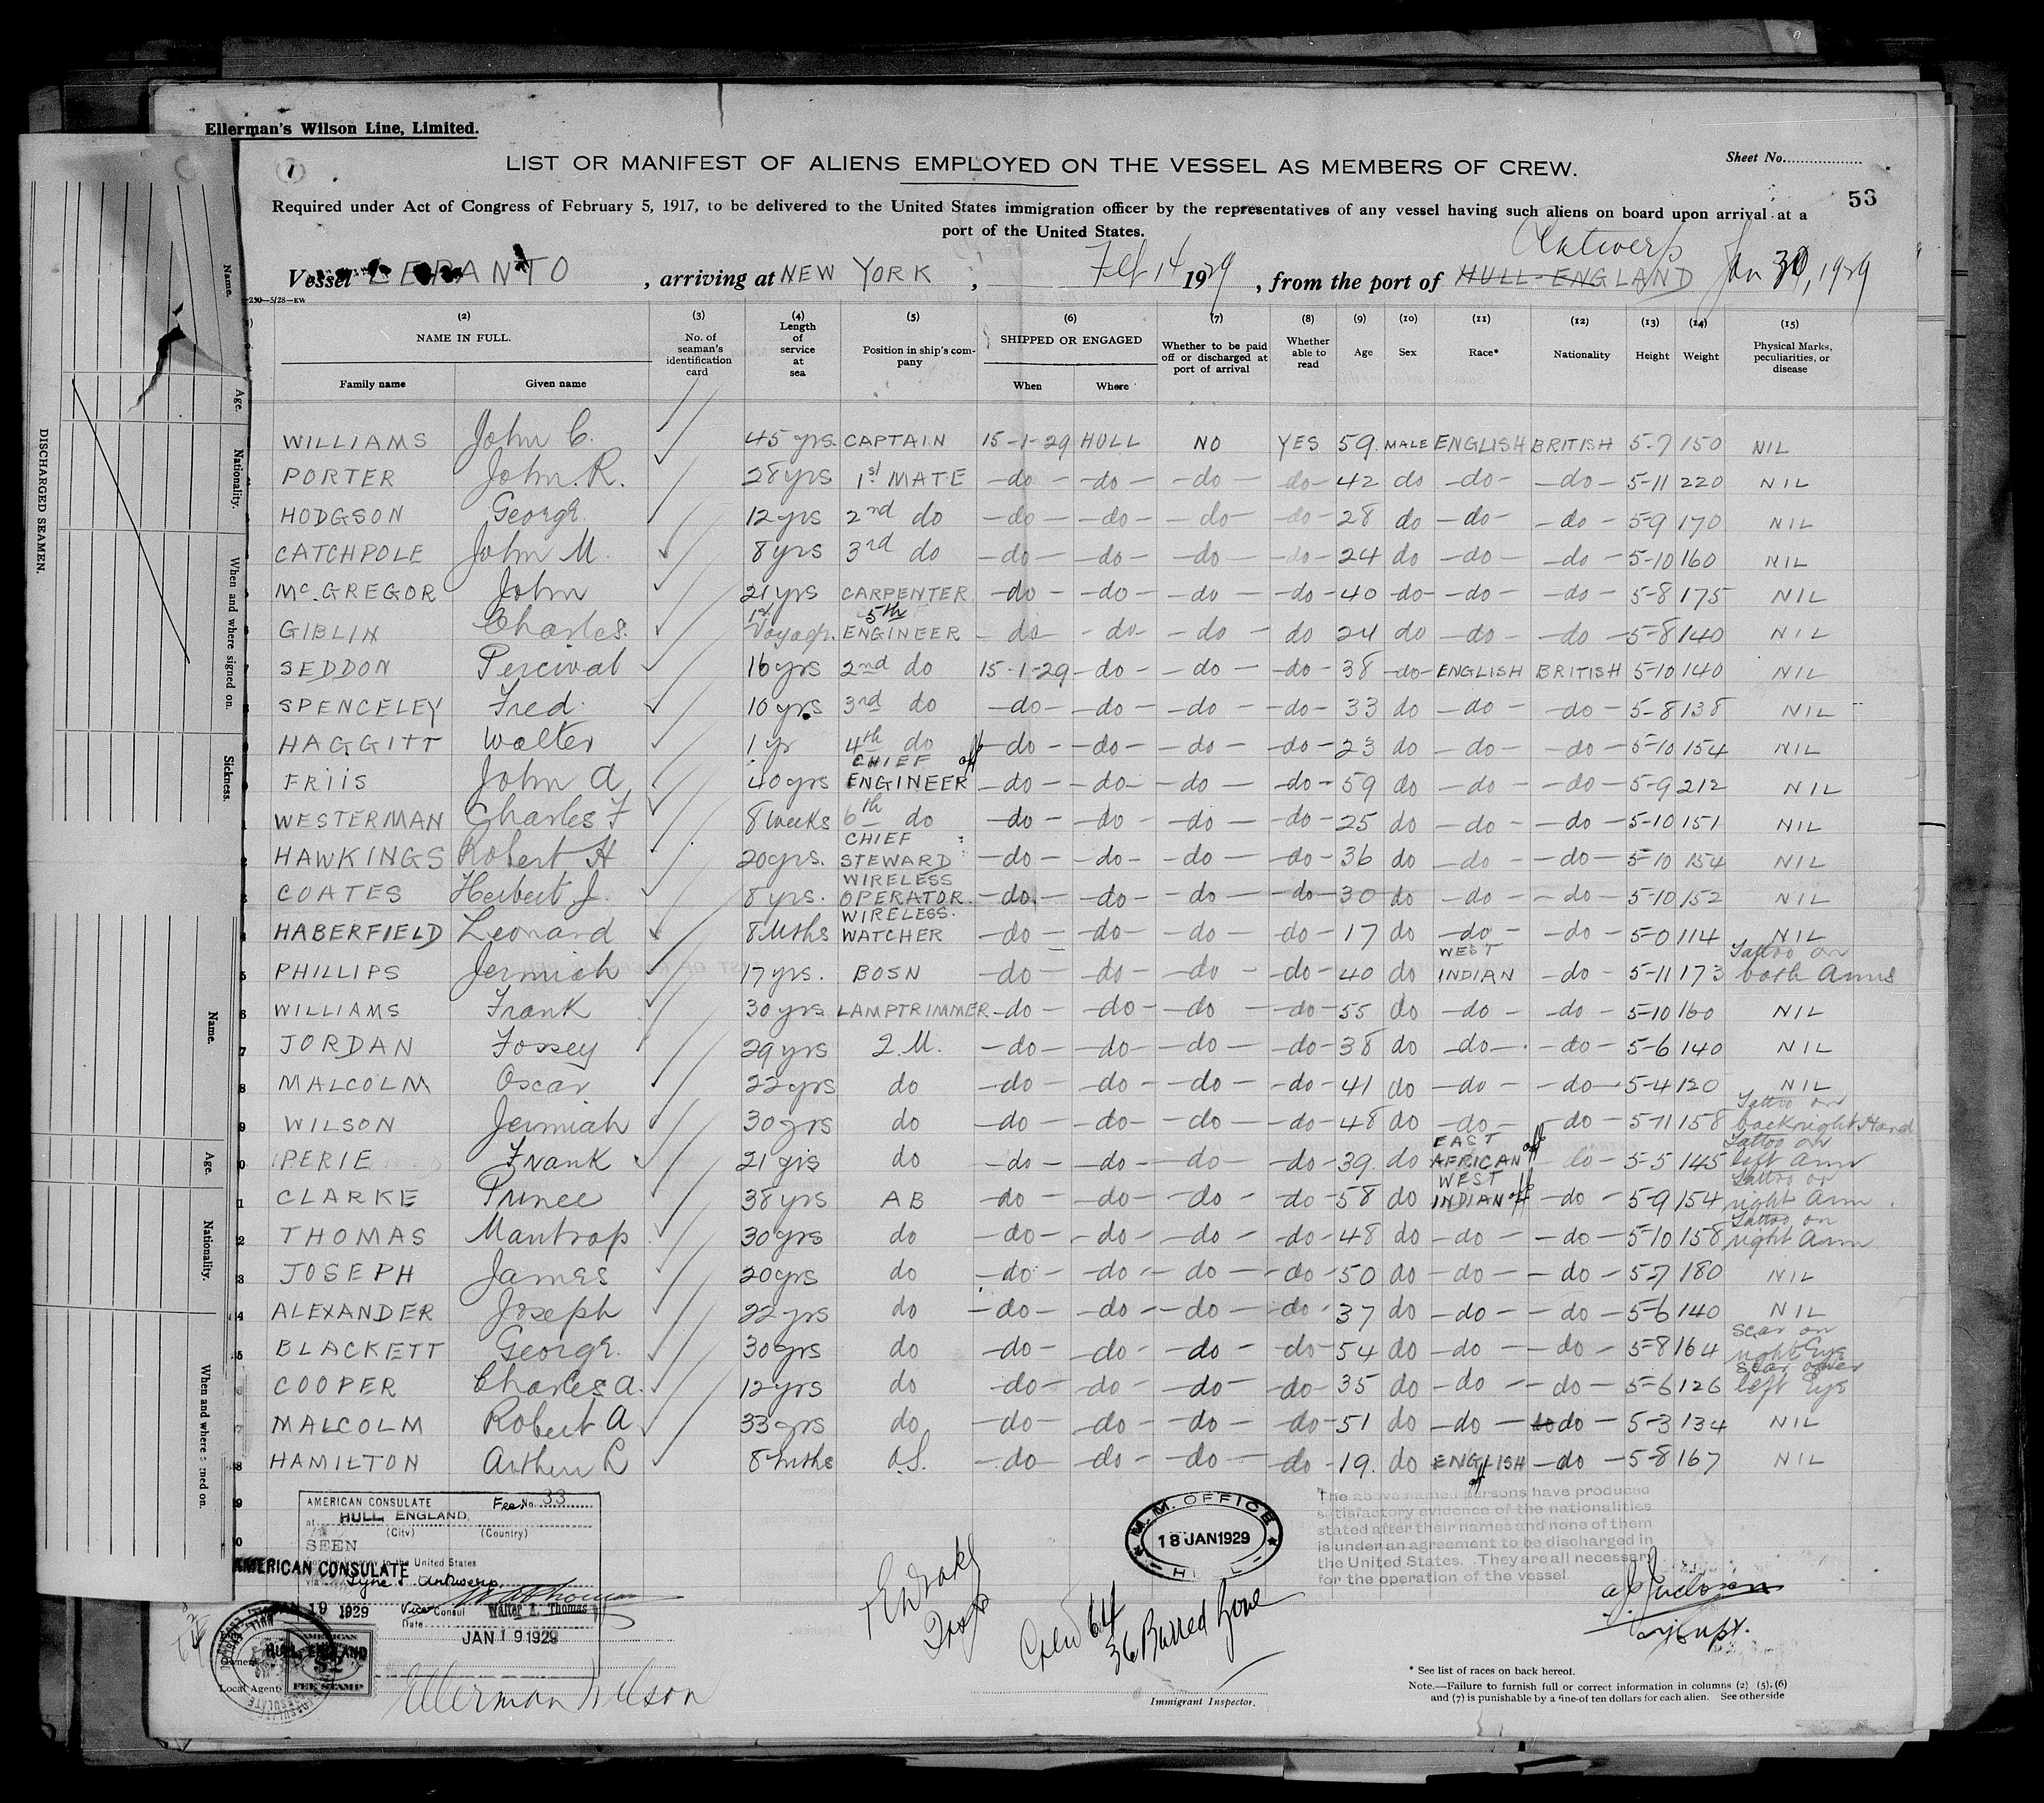 Ellerman's Wilson Line, Limited.
LIST OR MANIFEST OF ALIENS EMPLOYED ON THE VESSEL AS MEMBERS OF CREW.
Sheet No.
53
1
Required under Act of Congress of February 5, 1917, to be delivered to the United States immigration officer by the representatives of any vessel having such aliens on board upon arrival at a
port of the United States.
Antwerp
Vessel LEPANTO, arriving at NEW YORK, Feb 14 1929, from the port of HULL-ENGLAND Jan 30, 1929
230—5/28—KW
(2) (3) (4) (5) (6) (7) (8) (9) (10) (11) (12) (13) (14) (15)
NAME IN FULL. No. of seaman's identification card Length of service at sea Position in ship's company SHIPPED OR ENGAGED Whether to be paid off or discharged at port of arrival Whether able to read Age Sex Race* Nationality Height Weight Physical Marks, peculiarities, or disease
Family name Given name When Where
WILLIAMS John C. 45 yrs. CAPTAIN 15-1-29 HULL NO YES 59. MALE ENGLISH BRITISH 5-7 150 NIL
PORTER John. R. 28 yrs 1st MATE -do- -do- -do- -do- 42 do -do- -do- 5-11 220 NIL
HODGSON George. 12 yrs 2nd do -do- -do- -do- -do- 28 do -do- -do- 5-9 170 NIL
CATCHPOLE John M. 8 yrs 3rd do -do- -do- -do- -do- 24 do -do- -do- 5-10 160 NIL
Mc.GREGOR John 21 yrs CARPENTER -do- -do- -do- -do- 40 -do- -do- -do- 5-8 175 NIL
GIBLIN Charles. 1st Voyage. 5th ENGINEER -do- -do- -do- do 24 do -do- -do- 5-8 140 NIL
SEDDON Percival 16 yrs 2nd do 15-1-29 -do- -do- -do- 38 -do- ENGLISH BRITISH 5-10 140 NIL
SPENCELEY Fred. 10 yrs 3rd do -do- -do- -do- -do- 33 do -do- -do- 5-8 138 NIL
HAGGITT Walter 1 yr 4th do -do- -do- -do- -do- 23 do -do- -do- 5-10 154 NIL
FRIIS John A 40 yrs CHIEF ENGINEER off -do- -do- -do- -do- 59 do -do- -do- 5-9 212 NIL
WESTERMAN Charles F 8 weeks 6th do -do- -do- -do- -do- 25 do -do- -do- 5-10 151 NIL
HAWKINGS Robert H 20 yrs. CHIEF STEWARD -do- -do- -do- -do- 36 do -do- -do- 5-10 154 NIL
COATES Herbert J. 8 yrs. WIRELESS OPERATOR. -do- -do- -do- -do- 30 do -do- -do- 5-10 152 NIL
HABERFIELD Leonard 8 Mths WIRELESS. WATCHER -do- -do- -do- -do- 17 do -do- -do- 5-0 114 NIL
PHILLIPS Jermiah 17 yrs. BOSN -do- -do- -do- -do- 40 do WEST INDIAN -do- 5-11 173 Tattoo on both Arms
WILLIAMS Frank 30 yrs LAMPTRIMMER -do- -do- -do- -do- 55 do -do- -do- 5-10 160 NIL
JORDAN Fossey 29 yrs Q.M. -do- -do- -do- -do- 38 do -do- -do- 5-6 140 NIL
MALCOLM Oscar 22 yrs do -do- -do- -do- -do- 41 do -do- -do- 5-4 120 NIL
WILSON Jermiah 30 yrs do -do- -do- -do- -do- 48 do -do- -do- 5-11 158 Tattoo on back right Hand
PERIE Frank 21 yrs do -do- -do- -do- -do- 39. do EAST AFRICAN off -do- 5-5 145 Tattoo on left Arm
CLARKE Prince 38 yrs AB -do- -do- -do- -do- 58 do WEST INDIAN off -do- 5-9 154 Tattoo on right Arm
THOMAS Mantrop 30 yrs do -do- -do- -do- -do- 48 do -do- -do- 5-10 158 Tattoo on right Arm
JOSEPH James 20 yrs do -do- -do- -do- -do- 50 do -do- -do- 5-7 180 NIL
ALEXANDER Joseph 22 yrs do -do- -do- -do- -do- 37 do -do- -do- 5-6 140 NIL
BLACKETT George. 30 yrs do -do- -do- -do- -do- 54 do -do- -do- 5-8 164 Scar on right Eye
COOPER Charles A. 12 yrs do -do- -do- -do- -do- 35 do -do- -do- 5-6 126 Scar over left Eye
MALCOLM Robert A 33 yrs do -do- -do- -do- -do- 51 do -do- do- 5-3 134 NIL
HAMILTON Arthur L 8 mths O.S. -do- -do- -do- -do- 19. do ENGLISH off -do- 5-8 167 NIL
AMERICAN CONSULATE Fee No. 33
at HULL, ENGLAND.
(City) (Country)
SEEN
For the journey to the United States
AMERICAN CONSULATE
via Tyne & Antwerp
JAN 19 1929 Vice Consul Walter A. Thomas
Date
JAN 19 1929
HULL, ENGLAND
AMERICAN
$2
FEE STAMP
Owners
Local Agent
Ellerman Wilson
M. M. OFFICE
18 JAN 1929
HULL
The above named persons have produced
satisfactory evidence of the nationalities
stated after their names and none of them
is under an agreement to be discharged in
the United States. They are all necessary
for the operation of the vessel.
Crew 64
36 Barred Zone
Immigrant Inspector.
* See list of races on back hereof.
Note.—Failure to furnish full or correct information in columns (2) (5), (6)
and (7) is punishable by a fine of ten dollars for each alien. See otherside
DISCHARGED SEAMEN.
Name.
Age.
Nationality.
When and where signed on.
Sickness.
Name.
Age.
Nationality.
When and where signed on.